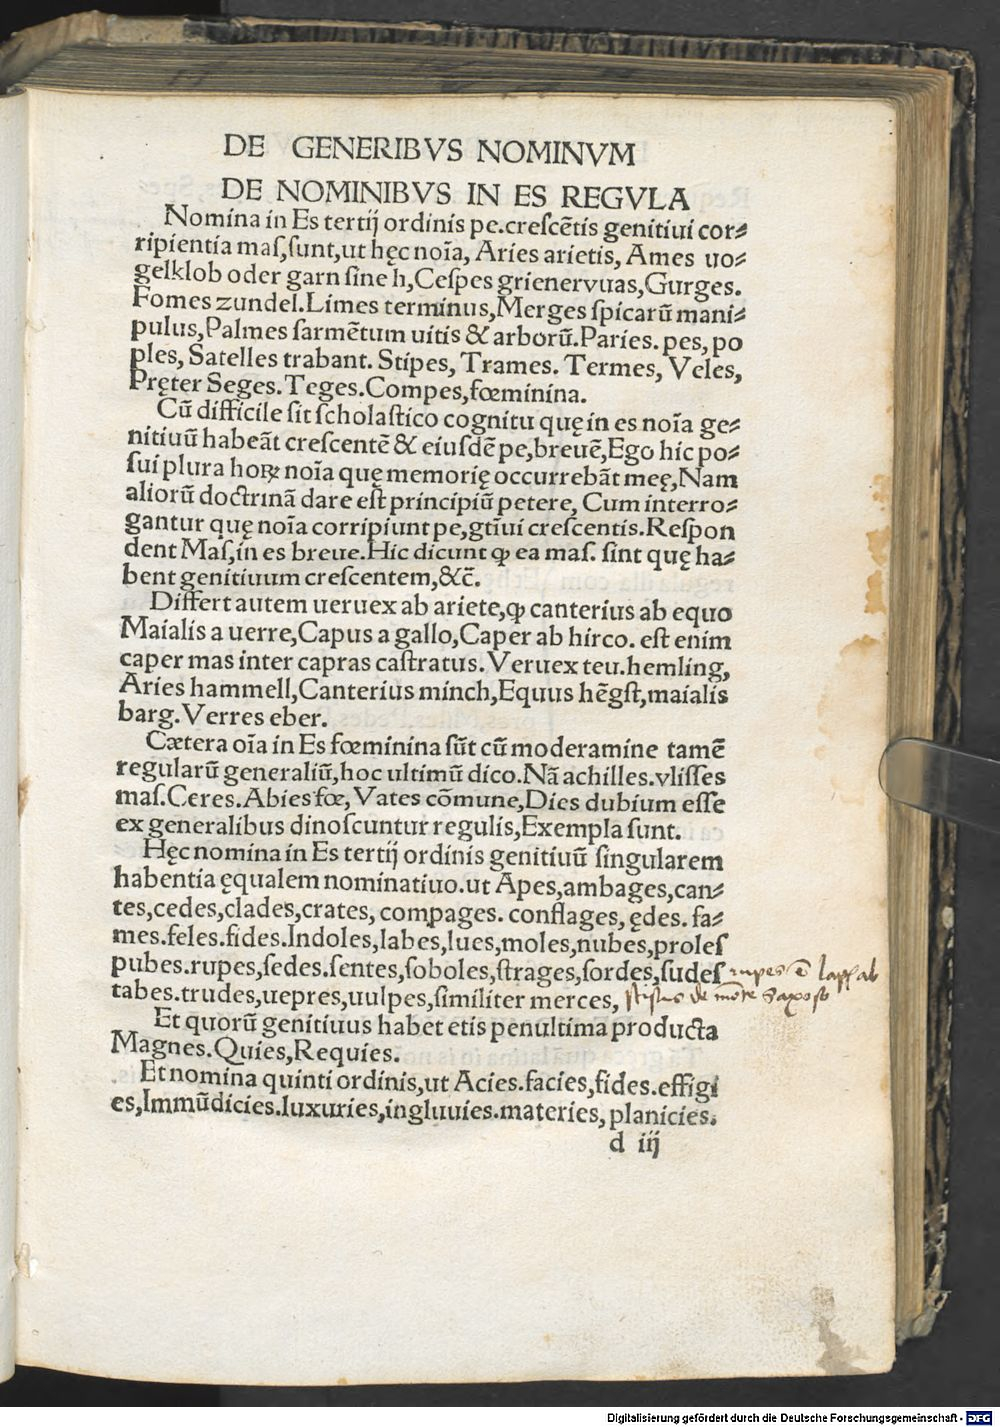 DE GENERIBVS NOMINVM
DE NOMINIBVS IN ES REGVLA
Nomina in Es tertij ordinis pe.creſcẽtis genitiui cor⸗
ripientia maſ,ſunt,ut hęc noĩa, Aries arietis, Ames uo⸗
gelklob oder garn ſine h,Ceſpes grienervuas,Gurges.
Fomes zundel.Limes terminus,Merges ſpicarũ mani⸗
pulus,Palmes ſarmẽtum uitis & arborũ.Paries. pes, po
ples, Satelles trabant. Stipes, Trames. Termes, Veles,
Pręter Seges.Teges.Compes,fœminina.
Cũ difficile ſit ſcholaſtico cognitu quę in es noĩa ge⸗
nitiuũ habeãt creſcentẽ & eiuſdẽ pe,breuẽ,Ego hic po⸗
ſui plura horꝝ noĩa quę memorię occurrebãt meę,Nam
aliorũ doctrinã dare eſt principiũ petere, Cum interro⸗
gantur quę noĩa corripiunt pe,gtĩui creſcentis.Reſpon
dent Maſ,in es breue.Hic dicunt ꝙ ea maſ. ſint quę ha⸗
bent genitiuum creſcentem,&c̃.
Differt autem ueruex ab ariete,ꝙ canterius ab equo
Maialis a uerre,Capus a gallo,Caper ab hirco. eſt enim
caper mas inter capras caſtratus. Veruex teu.hemling,
Aries hammell,Canterius minch,Equus hẽgſt,maialis
barg.Verres eber.
Cætera oĩa in Es fœminina ſũt cũ moderamine tamẽ
regularũ generaliũ,hoc ultimũ dico.Nã achilles.vliſſes
maſ.Ceres.Abies fœ, Vates cõmune,Dies dubium eſſe
ex generalibus dinoſcuntur regulis,Exempla ſunt.
Hęc nomina in Es tertij ordinis genitiuũ ſingularem
habentia ęqualem nominatiuo.ut Apes,ambages,can⸗
tes,cedes,clades,crates, compages. conflages, ędes. fa⸗
mes.feles.fides.Indoles,labes,lues,moles,nubes,proleſ
pubes.rupes,ſedes.ſentes,ſoboles,ſtrages,ſordes,ſudeſ rupes ẽ
tabes.trudes,uepres,uulpes,ſimiliter merces, de mõte saxoſo
Et quorũ genitiuus habet etis penultima producta
Magnes.Quies,Requies.
Et nomina quinti ordinis,ut Acies.facies,fides.effigi
es,Immũdicies.luxuries,ingluuies.materies, planicies.
d iij
Digitalisierung gefördert durch die Deutsche Forschungsgemeinschaft - DFG